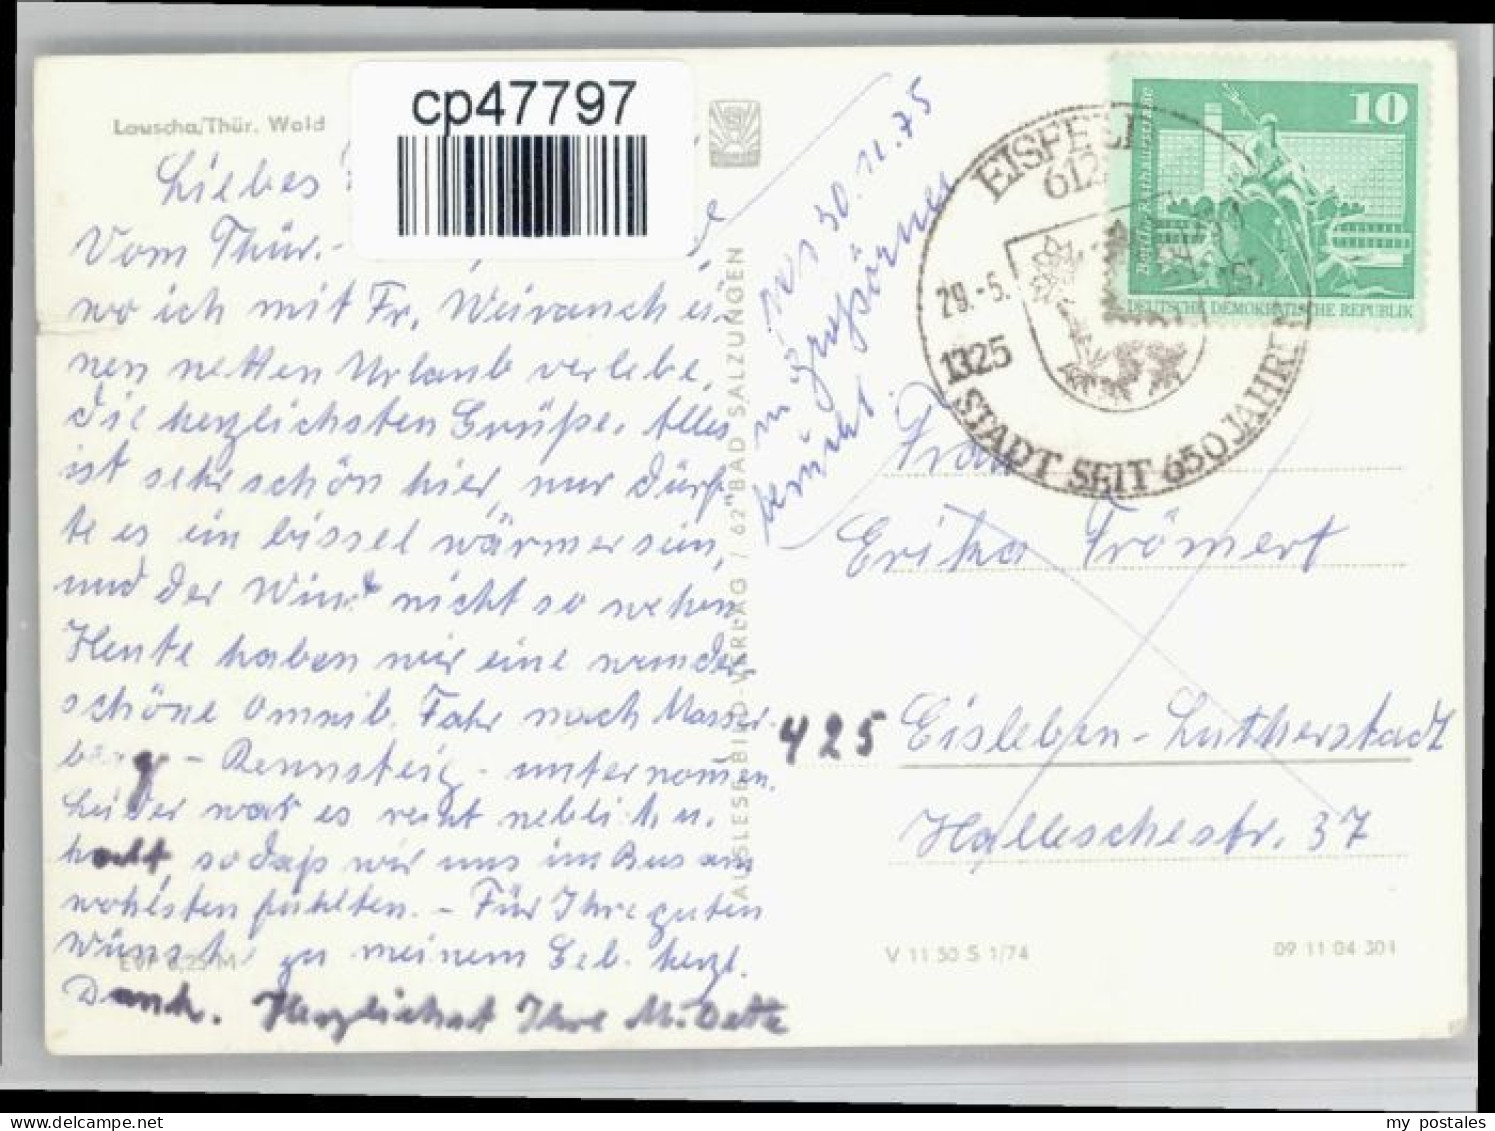 cp47797
Lauscha/Thür. Wald
Liebes
Vom Thür.-
wo ich mit Fr. Weirauch ei-
nen netten Urlaub verlebe,
die herzlichsten Grüße. Alles
ist sehr schön hier, nur dürf-
te es ein bissel wärmer sein,
und der Wind nicht so wehen
Heute haben wir eine wunder-
schöne Omnib. Fahr nach Masser-
berg - Rennsteig - unternommen.
Leider war es recht neblich u.
kalt, sodaß wir uns im Bus am
wohlsten fühlten. - Für Ihre guten
Wünsche zu meinem Geb. herzl.
Dank. Herzlichst Ihre M. Dette
EVP 0,25 M
AUSLESE-BILD-VERLAG / 62 BAD SALZUNGEN
30.11.75
in Großörner
besucht.
EISFELD
612
29.-5.
1325 STADT SEIT 650 JAHREN
10
Berlin, Rathausstraße
DEUTSCHE DEMOKRATISCHE REPUBLIK
Frau
Erika Trömert
425 Eisleben-Lutherstadt
Halleschestr. 37
V 11 50 S 1/74
09 11 04 301
my postales